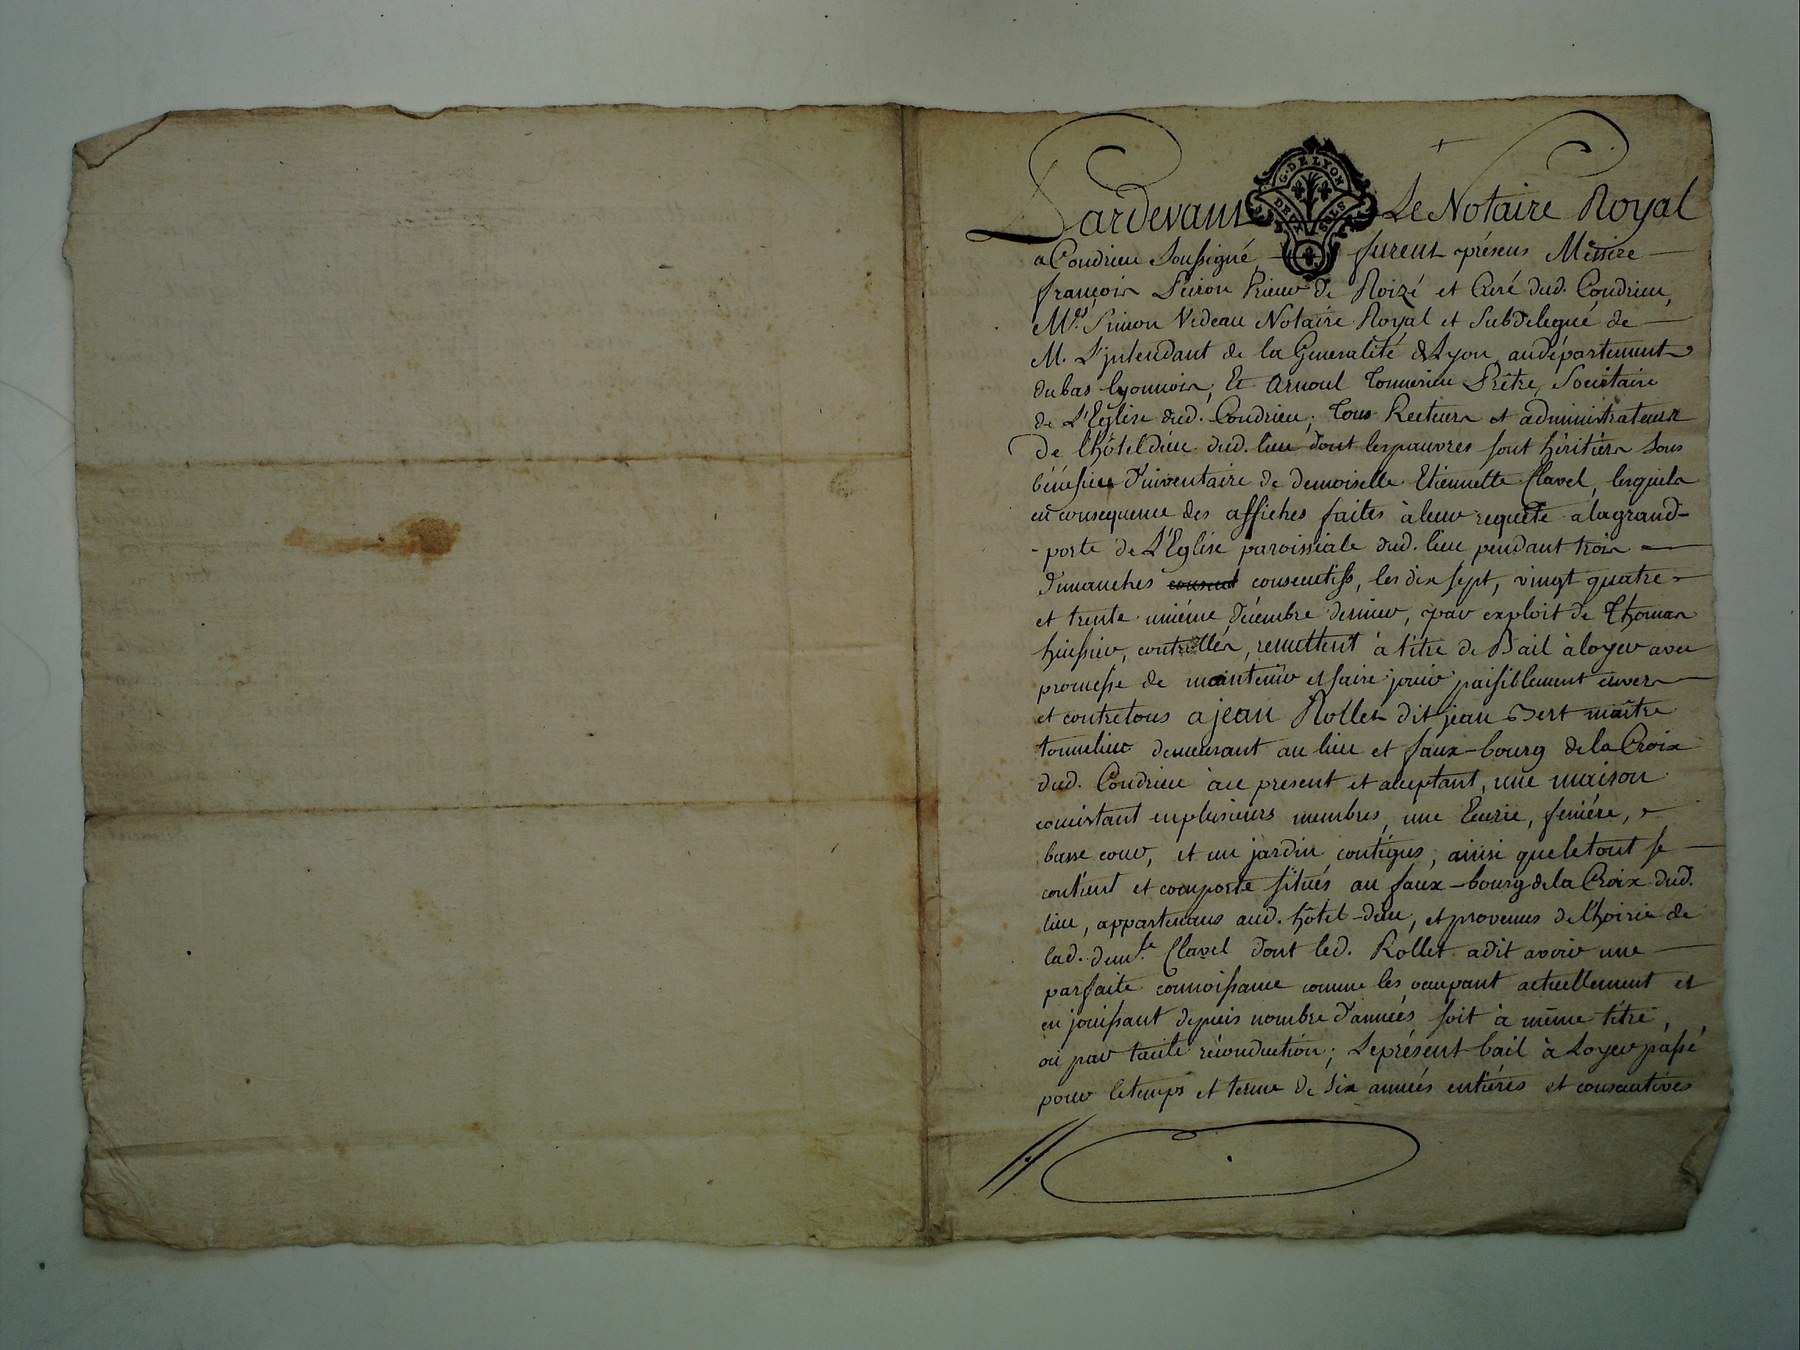 Pardevant Le Notaire Royal
G. DE LYON
DEUX SOLS
a Condrieu Soussigné, furent présens Messire
françois Prieur de Roizé et Curé dud. Condrieu,
Me. Simon Videau Notaire Royal et Subdelegué de
M. L'jntendant de la Generalité de Lyon, au département
du bas lyonnois, Et Arnoul Prêtre, Sociétaire
de L'Eglise dud. Condrieu, tous Recteurs et administrateurs
de l'hôtel dieu dud. lieu dont les pauvres sont héritiers sous
bénéfice d'inventaire de demoiselle Etiennette Clavel, lesquels
en consequence des affiches faites à leur requête a la grand-
-porte de L'Eglise paroissiale dud. lieu pendant trois
dimanches consecutifs, les dix sept, vingt quatre
et trente uniéme décembre dernier, par exploit de Thomas
huissier, controllés, remettent à titre de Bail à loyer avec
promesse de maintenir et faire jouir paisiblement envers
et contre tous a jean Rollet dit jean Bert maître
tonnelier demeurant au lieu et faux-bourg de la Croix
dud. Condrieu à ce present et acceptant, une maison
consistant en plusieurs membres, une Ecurie, feniére,
basse cour, et un jardin contigus, ainsi que le tout se
contient et comporte situés au faux-bourg de la Croix dud.
lieu, appartenans aud. hôtel-dieu, et provenus de l'hoirie de
lad. demlle Clavel dont led. Rollet a dit avoir une
parfaite connoissance comme les occupant actuellement et
en jouissant depuis nombre d'années, soit à même titre,
ou par tacite réconduction; Le présent bail à Loyer passé
pour le temps et terme de six années entiéres et consecutives